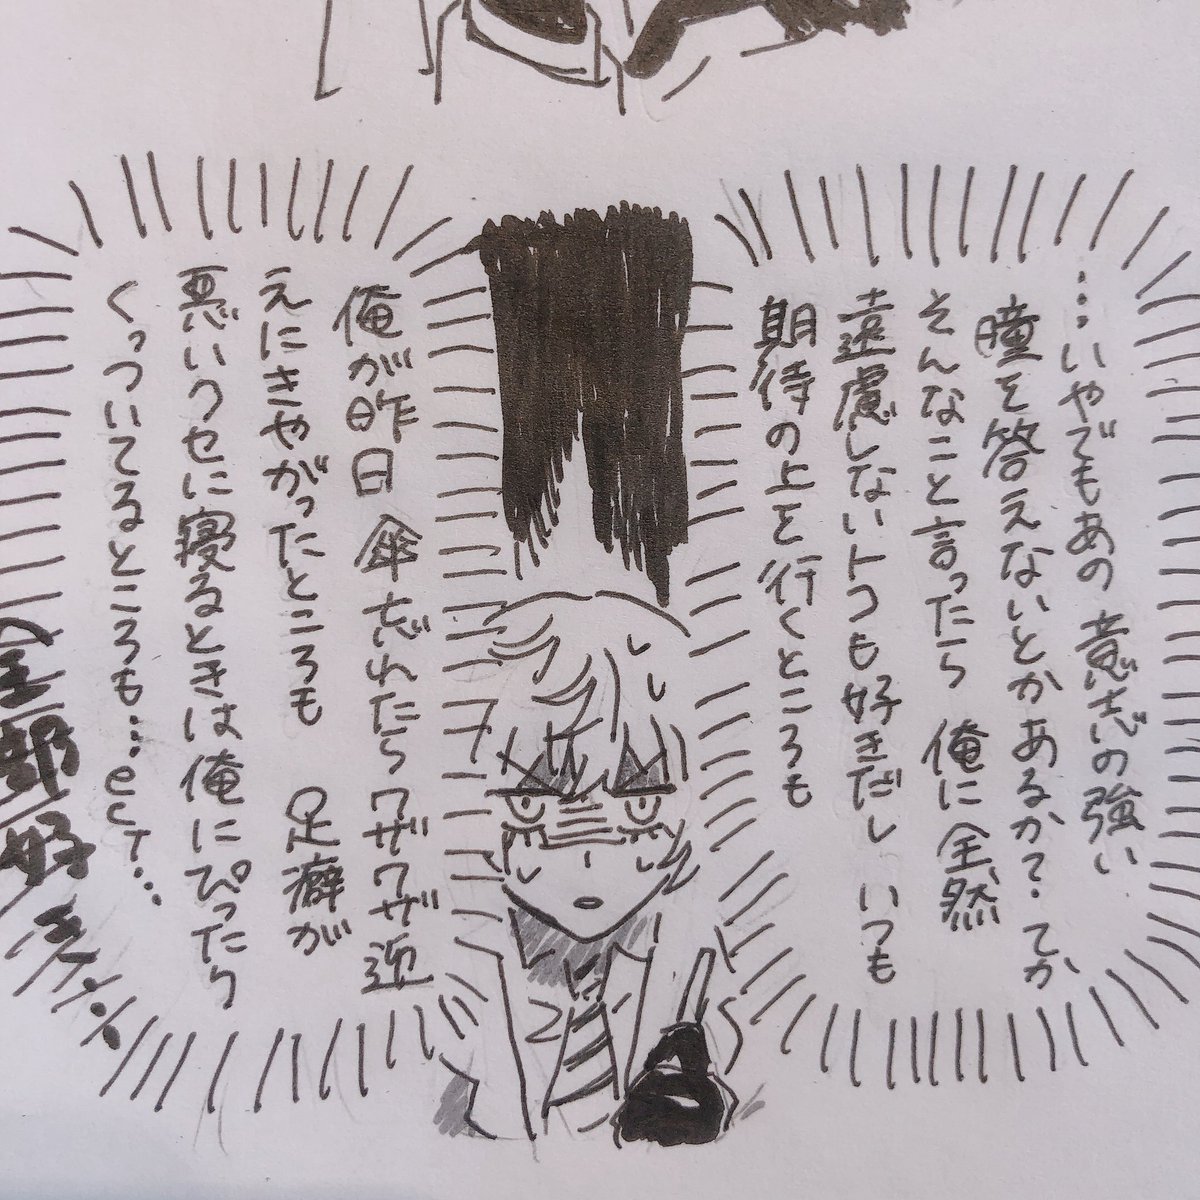 …いやでもあの意志の強い
瞳を答えないとかあるか?・てか
そんなこと言ったら 俺に全然
遠慮しないトコも好きだし いつも
期待の上を行くところも
俺が昨日 傘忘れたらワザワザ迎
えにきやがったところも 足癖が
悪いクセに寝るときは俺にぴったり
くっついてるところも…ect…
全部好き